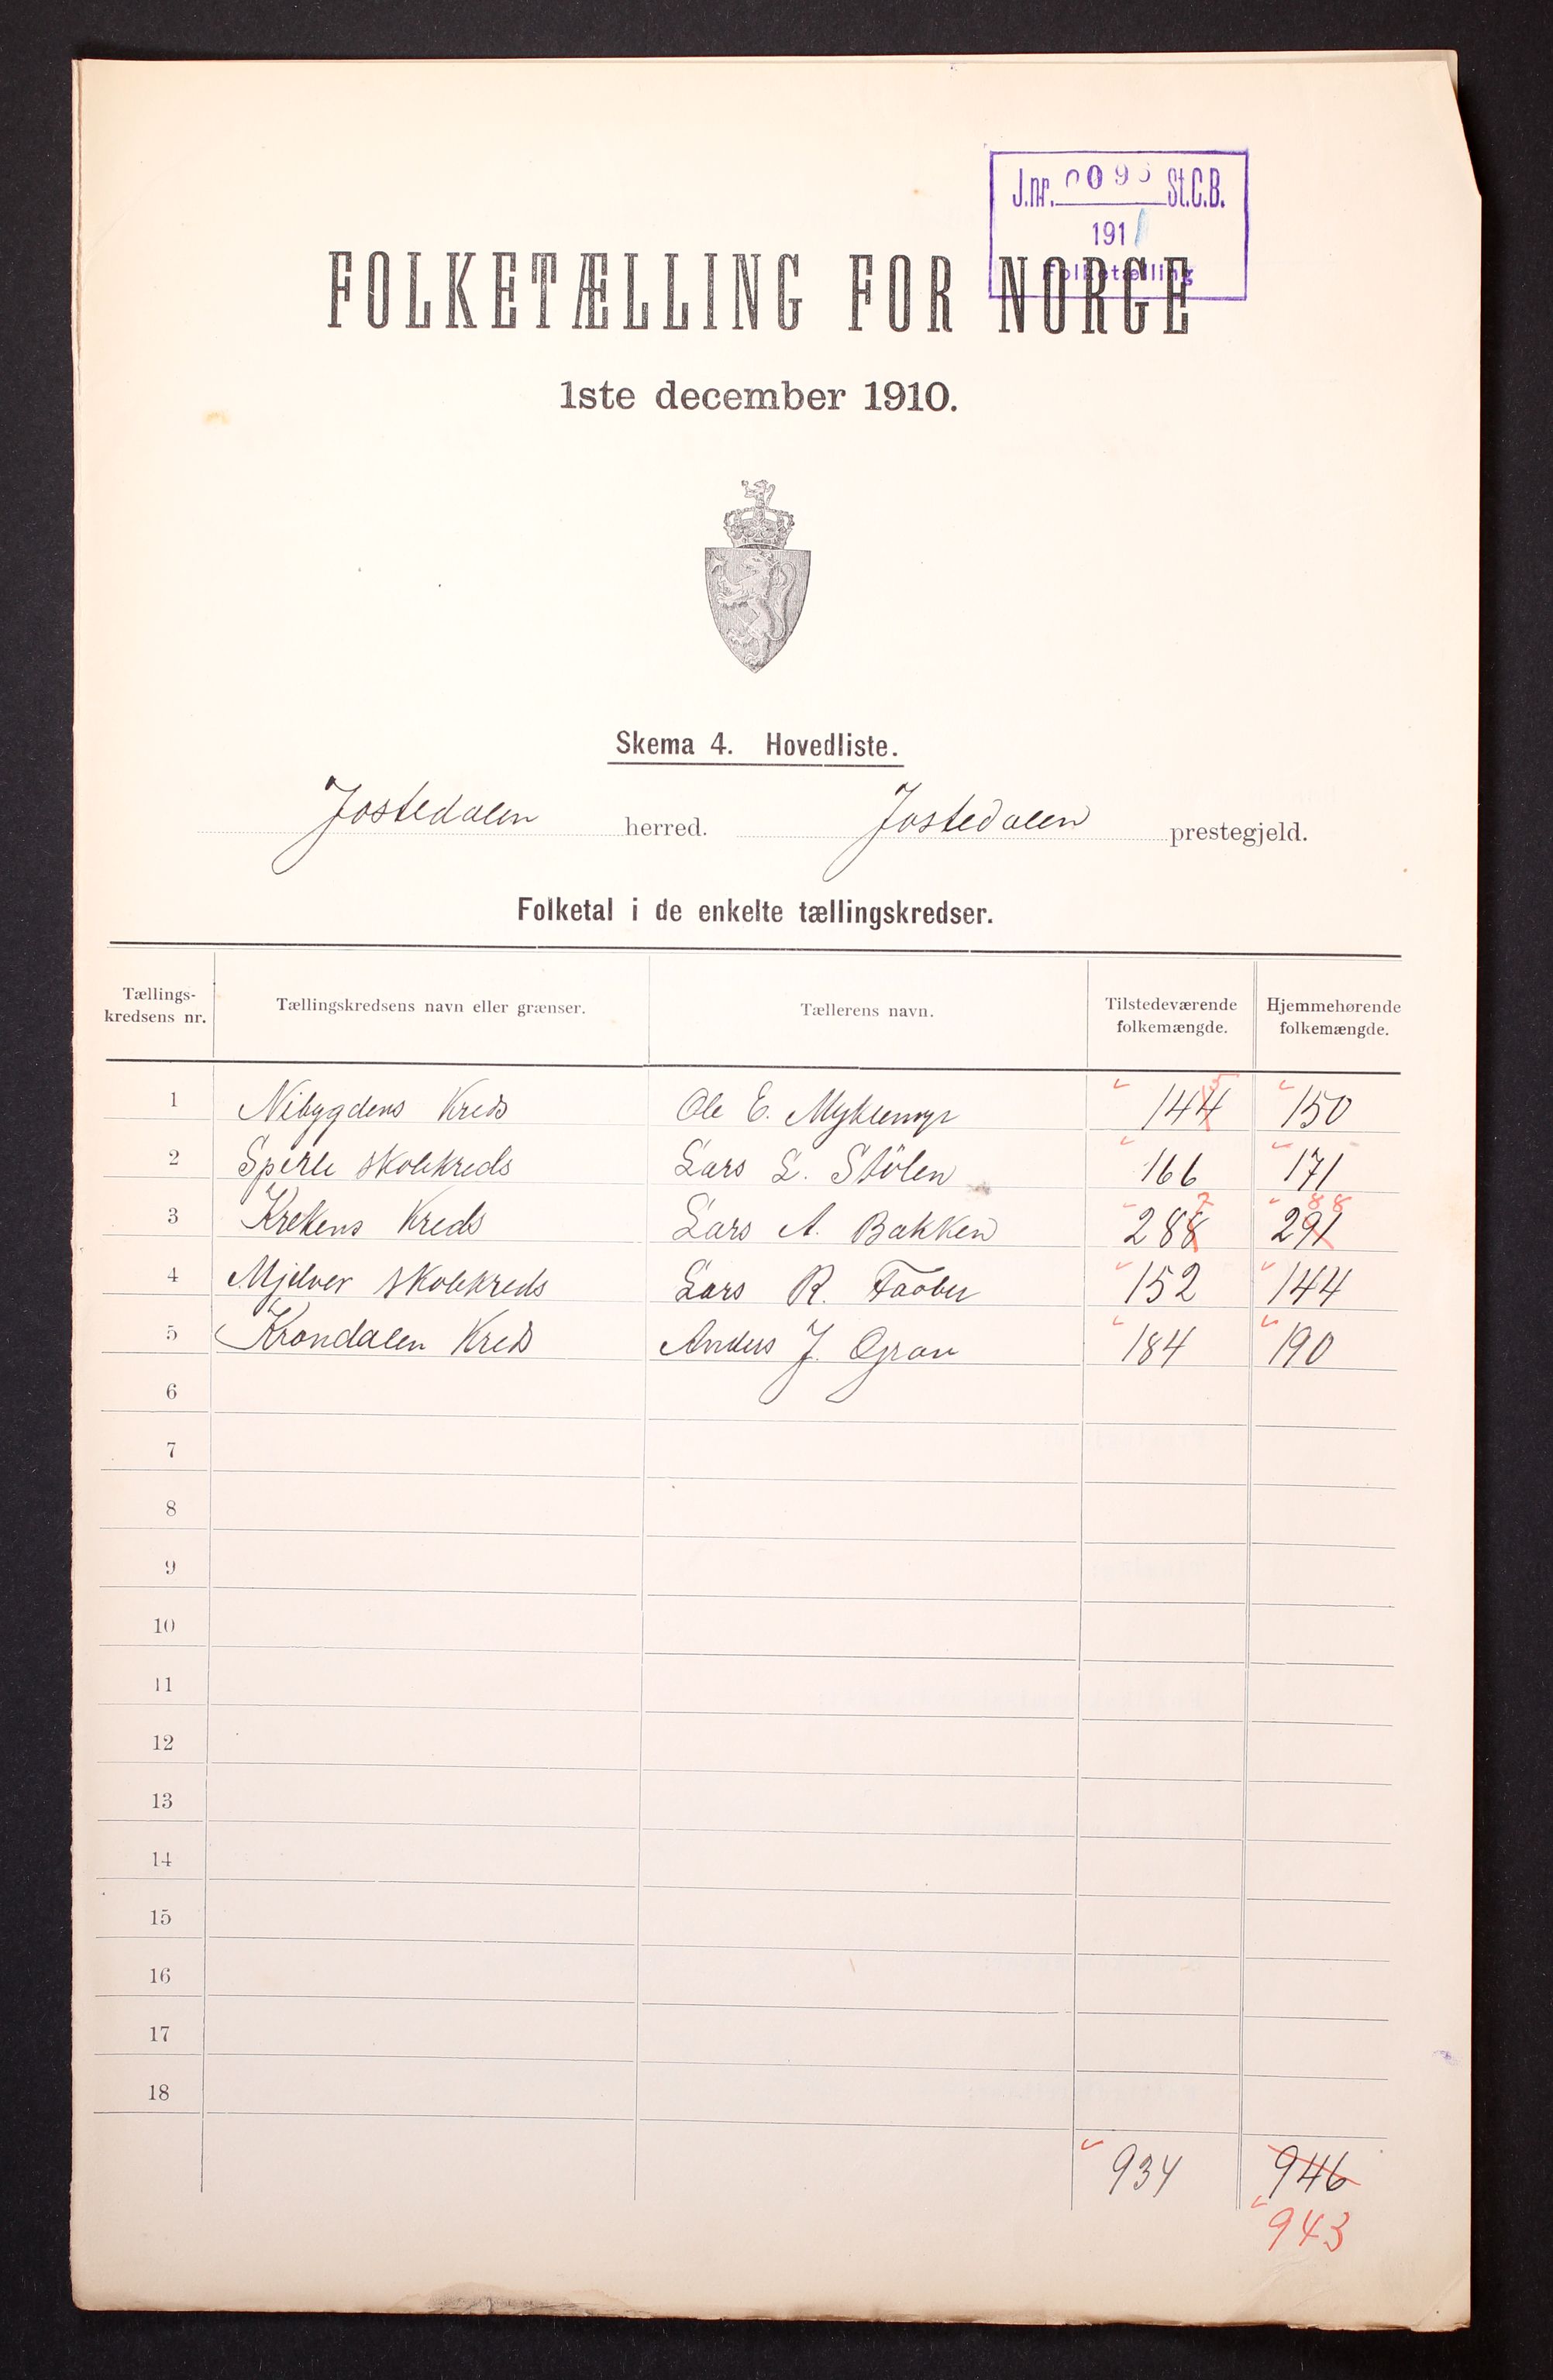 J.nr. 009 St.C.B.
191
Folketælling
FOLKETÆLLING FOR NORGE
1ste december 1910.
Skema 4. Hovedliste.
Jostedalen herred. Jostedalen prestegjeld.
Folketal i de enkelte tællingskredser.
Tællings-
kredsens nr.
Tællingskredsens navn eller grænser.
Tællerens navn.
Tilstedeværende
folkemængde.
Hjemmehørende
folkemængde.
1 Nibygdens Kreds Ole E. Myklemyr 144 5 150
2 Sperle skolekreds Lars L. Stölen 166 171
3 Krekens Kreds Lars A. Bakken 288 7 291 88
4 Mjelver skolekreds Lars R. Faaber 152 144
5 Krondalen Kreds Anders J. Grov 184 190
6
7
8
9
10
11
12
13
14
15
16
17
18
934 946
943